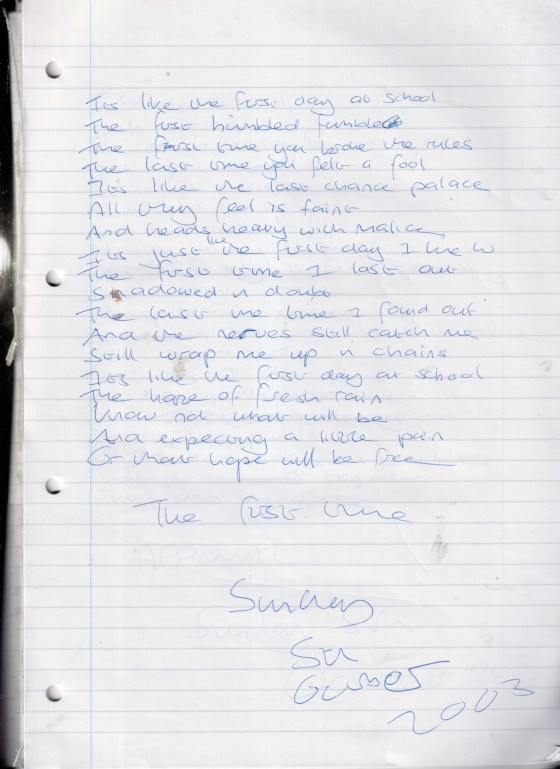 Its like the first day at school
The first humbled fumble
The first time you broke the rules
The last time you felt a fool
Its like the last chance palace
All they feel is faint
And heads heavy with malice
Its just like the first day I knew
The first time I lost out
Shadowed in doubt
The last time I found out
And the nerves still catch me
Still wrap me up n chains
Its like the first day at school
The haze of fresh rain
Know not what will be
And expecting a little pain
Or what hope will be free
The first time
Sunday
5th
October
2003